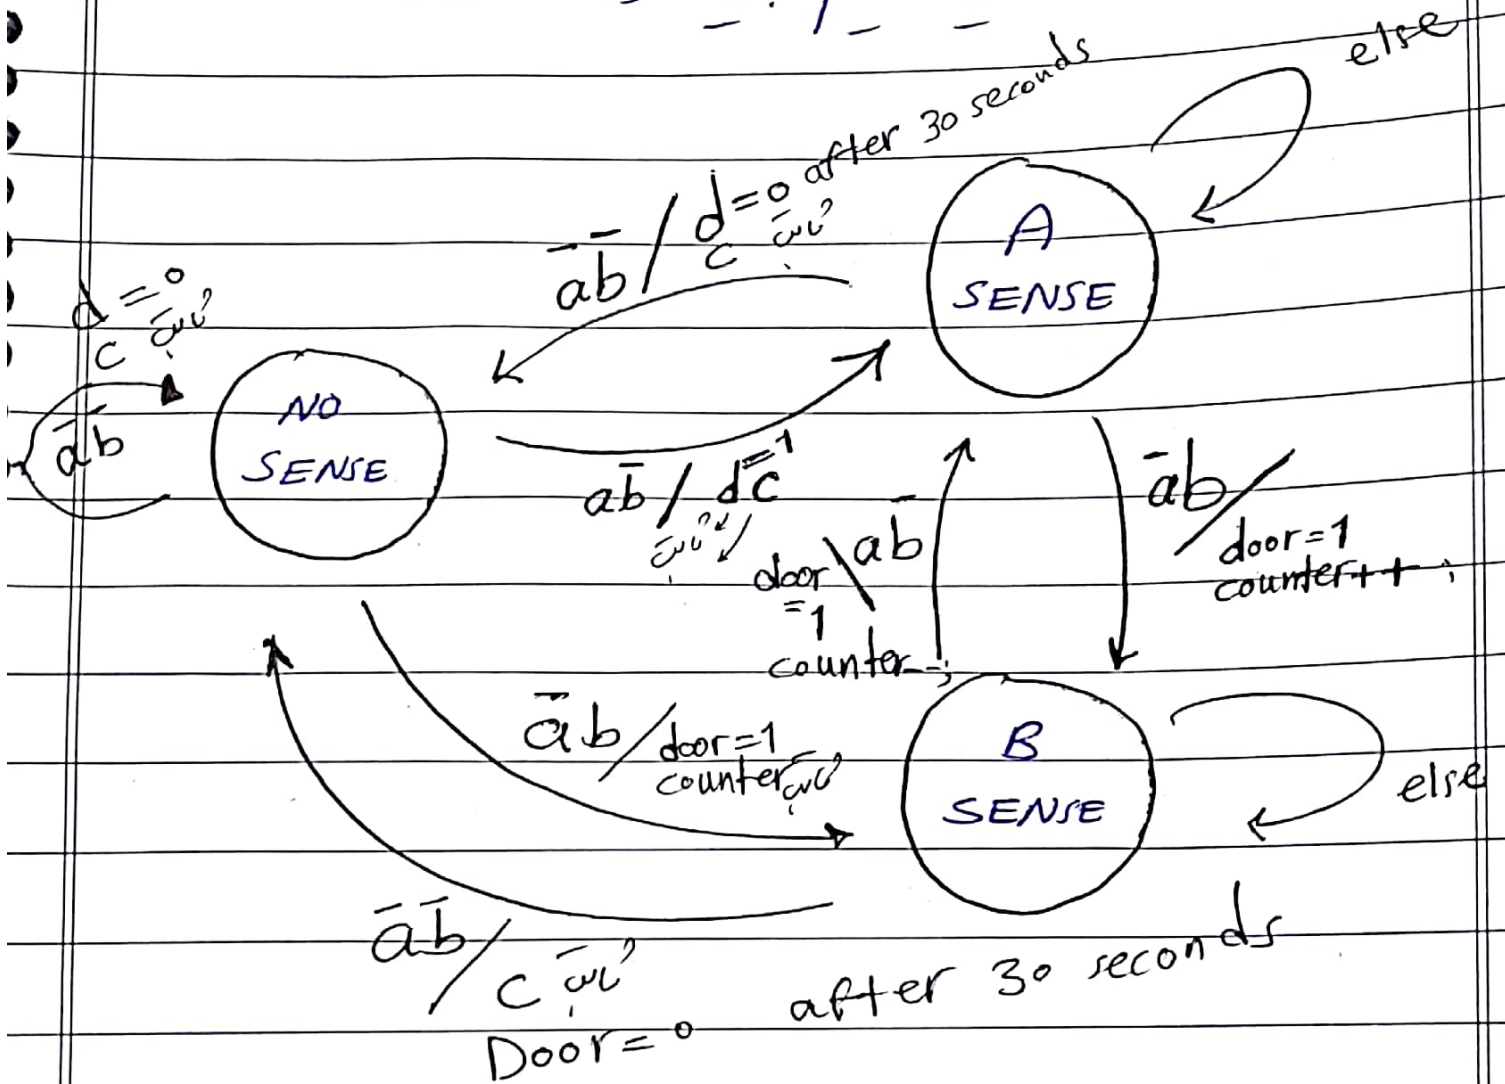 else
a̅b̅ / d=0 after 30 seconds
c ثابت
A
SENSE
d=0
c ثابت
a̅b̅
NO
SENSE
ab̅ / d=1 c
ثابت
a̅b /
door=1
counter++ ;
door \ ab̅
=1
counter--;
a̅b / door=1
counter ثابت
B
SENSE
else
a̅b̅ / c ثابت
Door=0 after 30 seconds